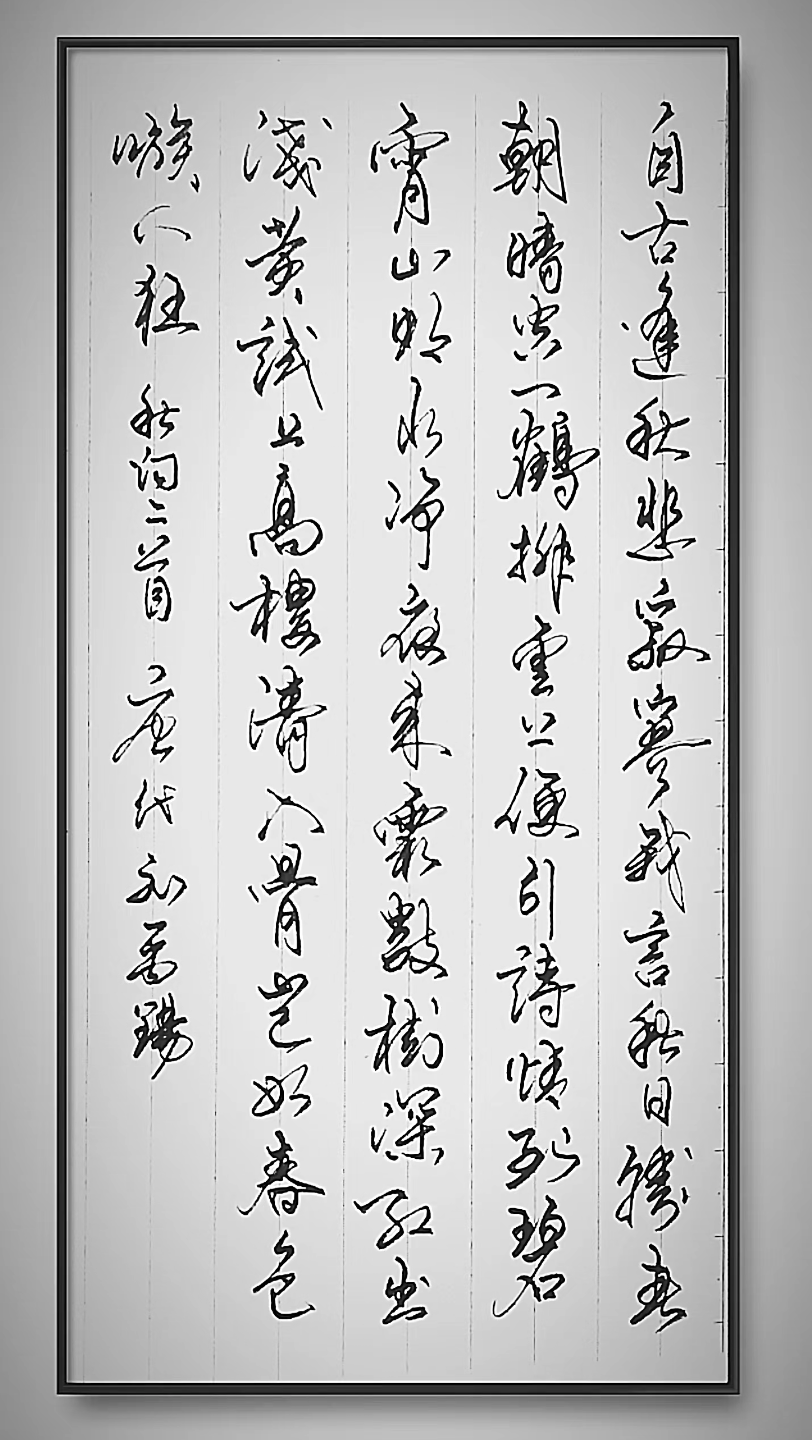 自古逢秋悲寂寥我言秋日勝春
朝晴空一鶴排雲上便引詩情到碧
霄山明水净夜来霜數樹深紅出
淺黄試上高樓清入骨豈如春色
嗾人狂 秋词二首 唐代刘禹錫